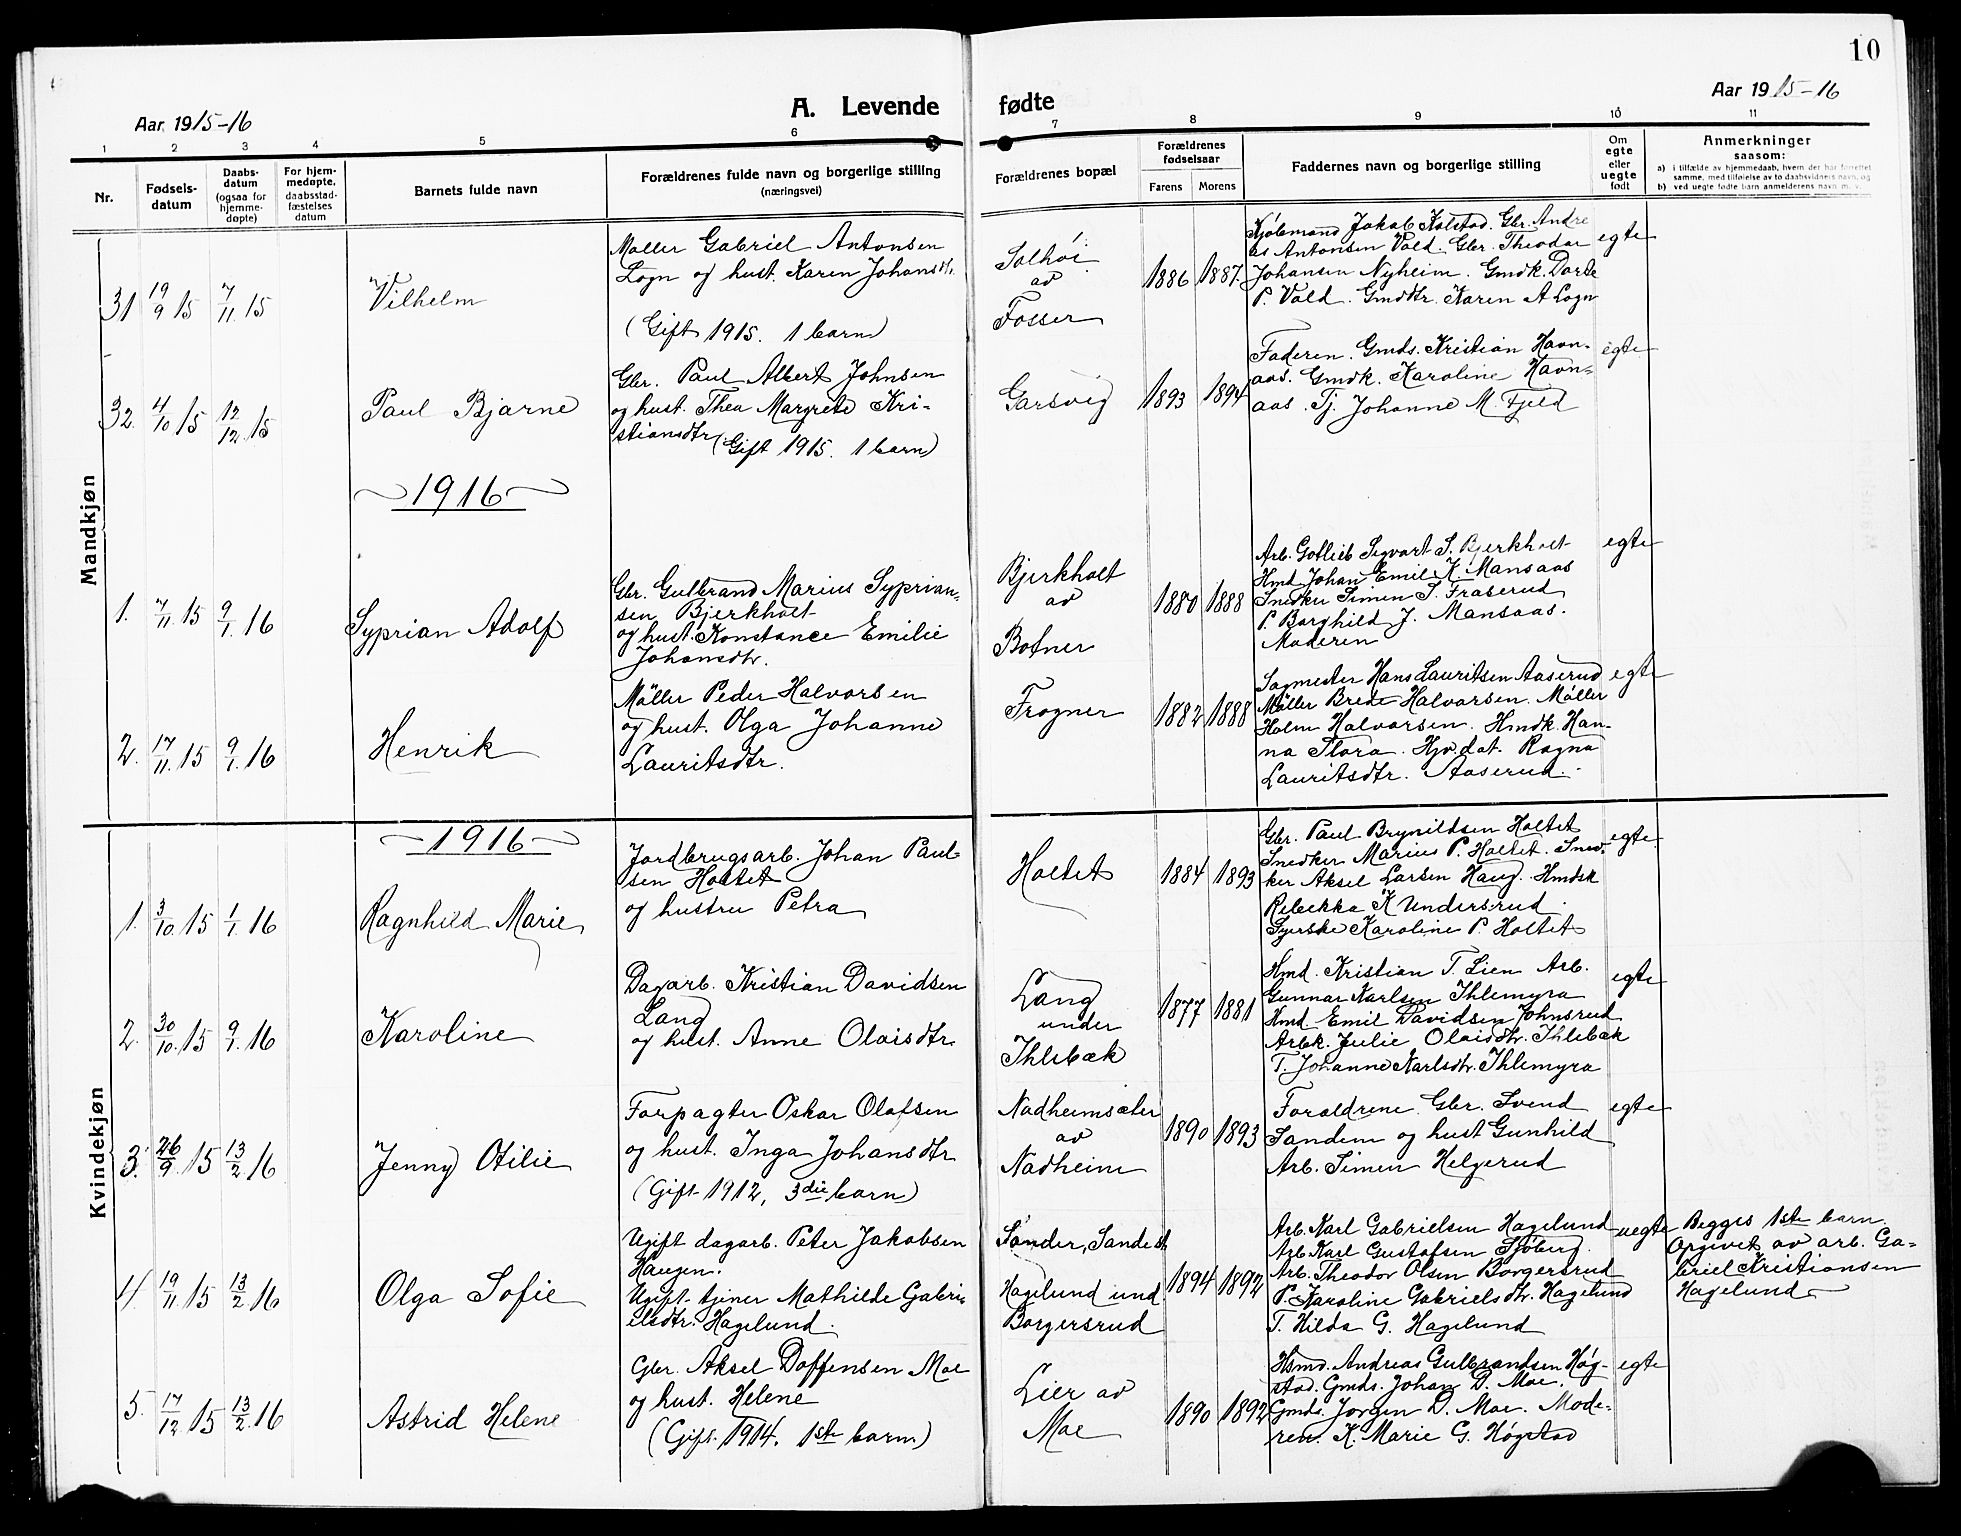 10
Aar 1915-16
A. Levende fødte
Aar 1915-16
1 2 3 4 5 6 7 8 9 10 11
Nr.
Fødsels-
datum
Daabs-
datum
(ogsaa for
hjemme-
døpte)
For hjem-
medøpte,
daabsstad-
fæstelses
datum
Barnets fulde navn
Forældrenes fulde navn og borgerlige stilling
(næringsvei)
Forældrenes bopæl
Forældrenes
fødselsaar
Farens Morens
Faddernes navn og borgerlige stilling
Om
egte
eller
uegte
født
Anmerkninger
saasom:
a) i tilfælde av hjemmedaab, hvem der har forrettet
samme, med tilføielse av to daabsvidners navn, og
b) ved uegte fødte barn anmelderens navn m. v.
Mandkjøn
31 19/9 15 7/11 15
Vilhelm
Møller Gabriel Antonsen
Logn og hust. Karen Johansdtr.
(Gift 1915. 1 barn)
Solhøi
av
Fosser
1886 1887.
Kjøbmand Jakob Kolstad. Gbr. Andre
as Antonsen Vold. Gbr. Theodor
Johansen Nyheim. Gmdk. Dorthe
P. Vold. Gmddtr. Karen A Logn
egte
32. 4/10 15 12/12 15
Paul Bjarne
Gbr. Paul Albert Johnsen
og hust. Thea Margrete Kri-
stiansdtr (Gift 1915. 1 barn)
Garsvig
1893 1894
Faderen. Gmds. Kristian Havn-
aas. Gmdk. Karoline Havn-
aas. Tj. Johanne M. Fjeld
egte
1916
1. 7/11 15 9/1 16
Syprian Adolf
Gbr. Gulbrand Marius Syprian-
sen Bjerkholt
og hust. Konstance Emilie
Johansdtr.
Bjerkholt
av
Botner
1880 1888
Arb. Gotlieb Sigvart S. Bjerkholt
Hmd Johan Emil K Mansaas
Snedker Simen T. Fraserud
P. Borghild J. Mansaas.
Moderen
egte
2. 17/11 15 9/1 16
Henrik
Møller Peder Halvorsen
og hust. Olga Johanne
Lauritsdtr.
Frogner
1882 1888
Sagmester Hans Lauritsen Aaserud
Møller Brede Halvorsen Møller
Holm Halvorsen. Hmdk. Han-
na Flora. Hjv.dat. Ragna
Lauritsdtr. Aaserud.
egte
Kvindekjøn
1916
1. 3/10 15 1/1 16
Ragnhild Marie
Jordbrugsarb. Johan Paul-
sen Holtet
og hustru Petra
Holtet
1884 1893
Gbr. Paul Brynildsen Holtet
Snedker Marius P. Holtet. Sned-
ker Aksel Larsen Haug. Hmdsk
Rebekka K Undersrud.
Syerske Karoline P. Holtet
egte
2. 30/10 15 9/1 16
Karoline
Dagarb. Kristian Davidsen
Lang
og hust. Anne Olaisdtr.
Lang
under
Ihlebæk
1877 1881
Hmd. Kristian T. Lien Arb.
Gunnar Karlsen Ihlemyra
Hmd Emil Davidsen Johnsrud
Arbk. Julie Olaisdtr. Ihlebæk
T. Johanne Karlsdtr. Ihlemyra
egte
3. 26/9 15 13/2 16
Jenny Otilie
Forpagter Oskar Olafsen
og hust. Inga Johansdtr
(Gift 1912, 3die barn)
Nadheimsæter
av
Nadheim
1890 1893
Forældrene. Gbr. Svend
Sandem og hust Gunhild
Arb. Simen Helgerud
egte
4. 19/11 15 13/2 16
Olga Sofie
Ugift dagarb. Peter Jakobsen
Haugen.
Ugift tjener Mathilde Gabri-
elsdtr. Hagelund.
Hagelund und.
Borgersrud
1894 1892
Arb. Karl Gabrielsen Hagelund
Arb. Karl Gustafsen Sjøberg.
Arb. Theodor Olsen Borgersrud
P. Karoline Gabrielsdtr. Hagelund
T. Hilda G. Hagelund
uegte
Begges 1ste barn.
Opgivet av arb. Ga-
briel Kristiansen
Hagelund
5. 17/12 15 13/2 16
Astrid Helene
Gbr. Aksel Doffensen Moe
og hust. Helene
(Gift. 1914. 1ste barn)
Lier av
Moe
1890 1892
Hsmd. Andreas Gulbrandsen Høg-
stad. Gmds. Johan D. Moe.
Gmds. Jørgen D. Moe. Mode-
ren. K. Marie G. Høgstad
egte